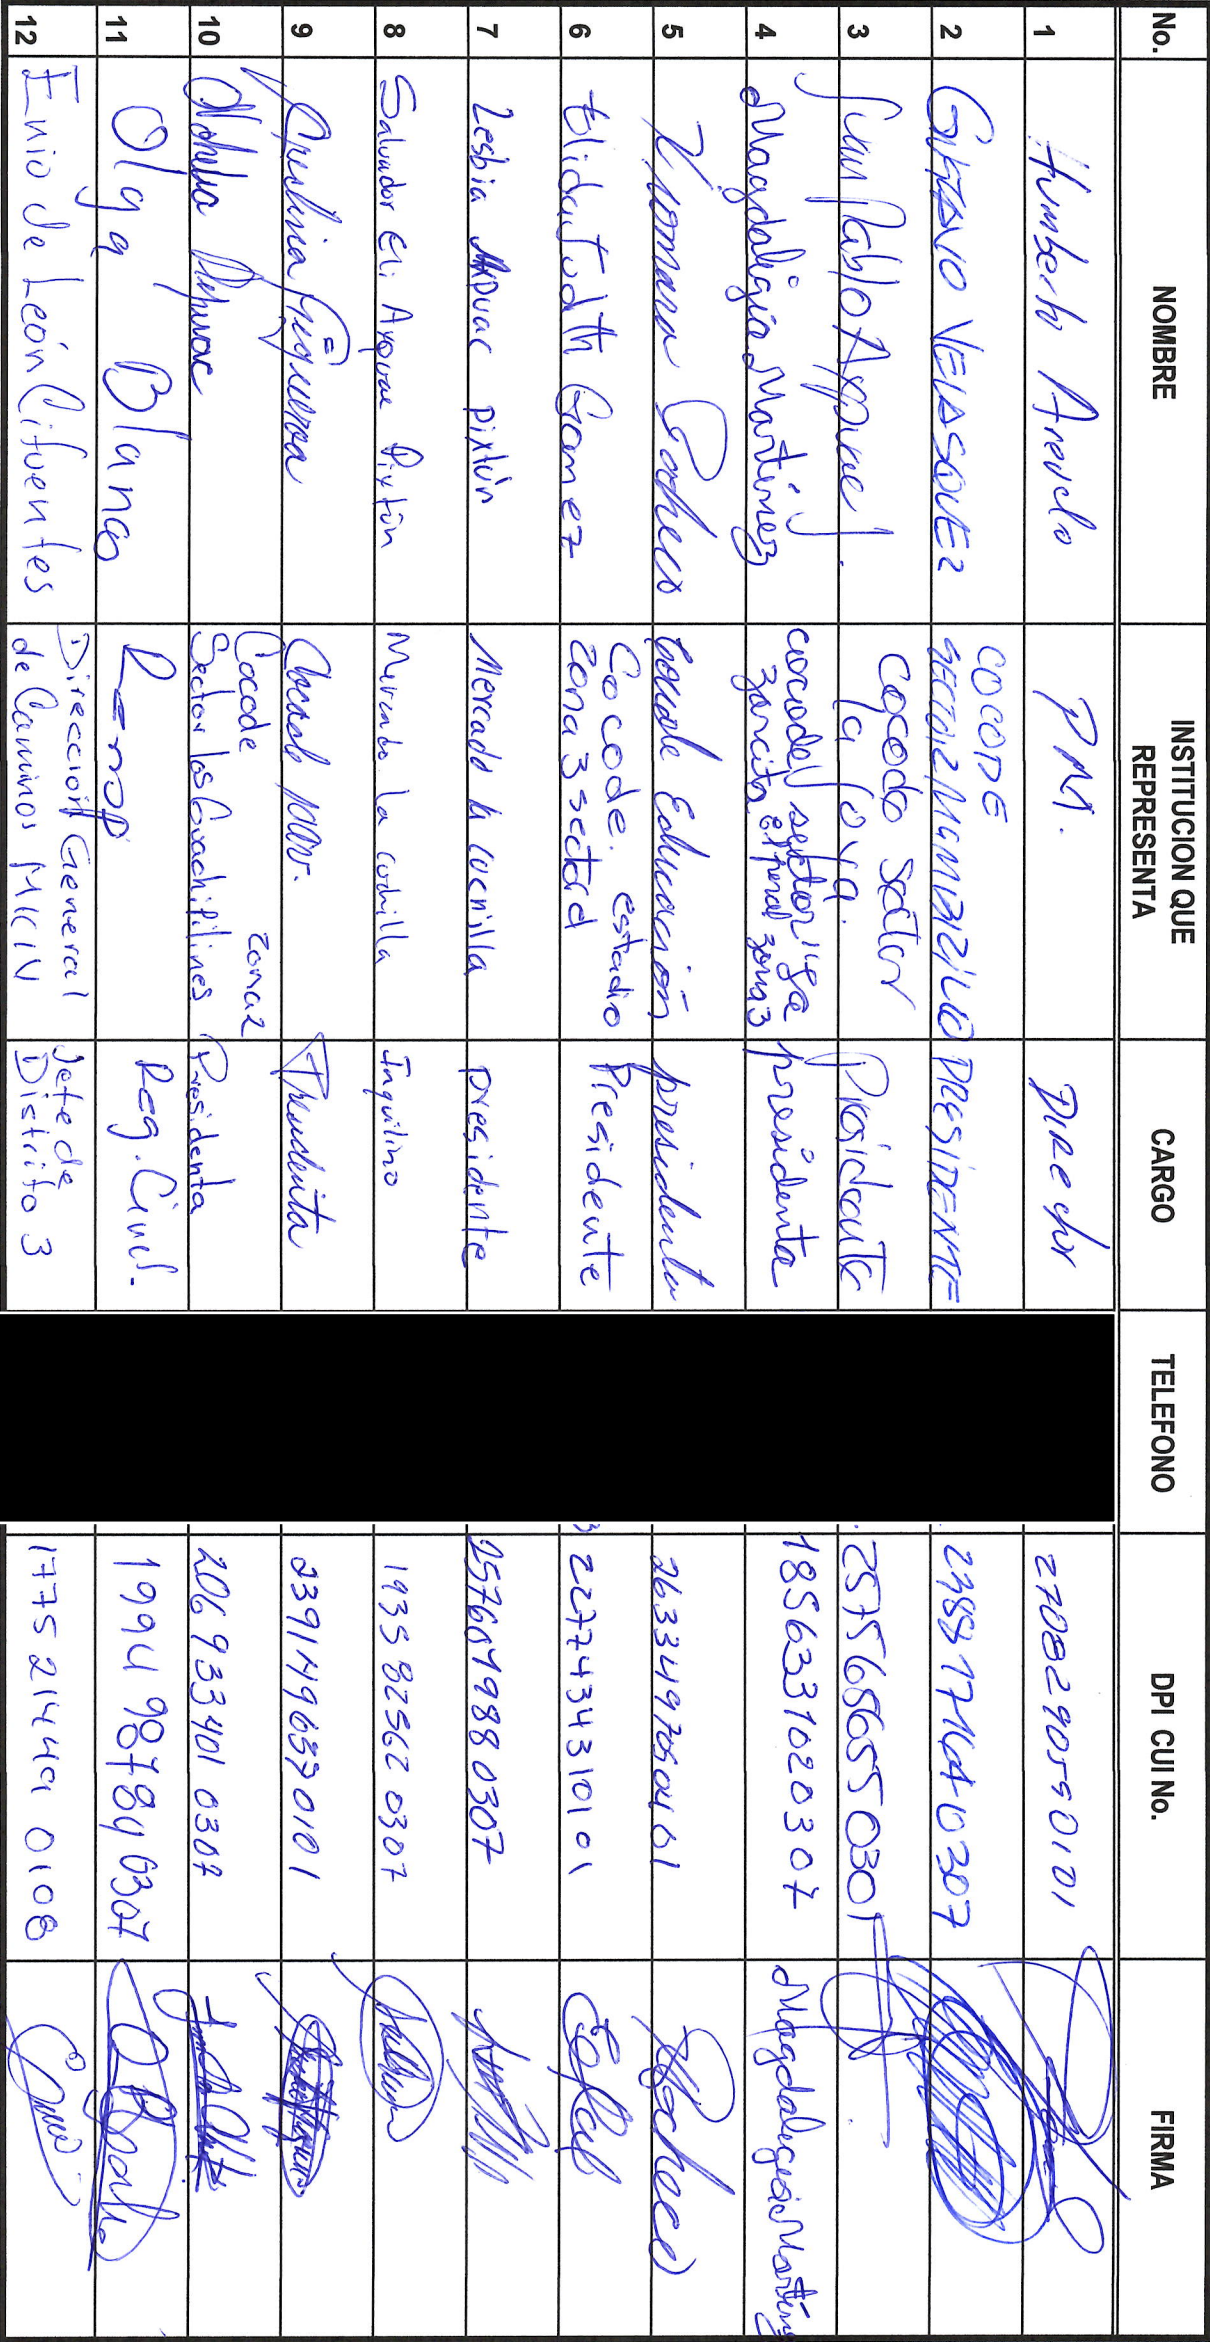 No. NOMBRE INSTITUCION QUE REPRESENTA CARGO TELEFONO DPI CUI No. FIRMA
1 Humberto Arevalo P.M. Director 2708290550101
2 GUSTAVO VELASQUEZ COCODE SECTOR 2 PRESIDENTE 0307
3 Juan Pablo Axpuac J. Cocode Sector La Joya. Presidente 2575656550307
4 Magdaligia Martínez cocode sector zarcita el penal zona 3 presidenta 1856331620307 Magdaligia Martínez
5 Xiomara Pacheco Educación presidenta 2633497050401 Pacheco
6 Elida Judith Gomez Cocode. estadio zona 3 sector d Presidente 2277434310101
7 Lesbia Axpuac pixtún Mercado la cuchilla presidente 2576079880307
8 Salvador Eli Axpuac Pixtún Mercado la cuchilla Inquilino 1935825620307
9 Figueroa 2391496390101
10 Cocode zona 2 Sector los Guachipilines Presidenta 2069334010307
11 Olga Blanco Renap Reg. Civil. 1994987840307
12 Enio de León Cifuentes Dirección General de Caminos MICIV Jefe de Distrito 3 0108